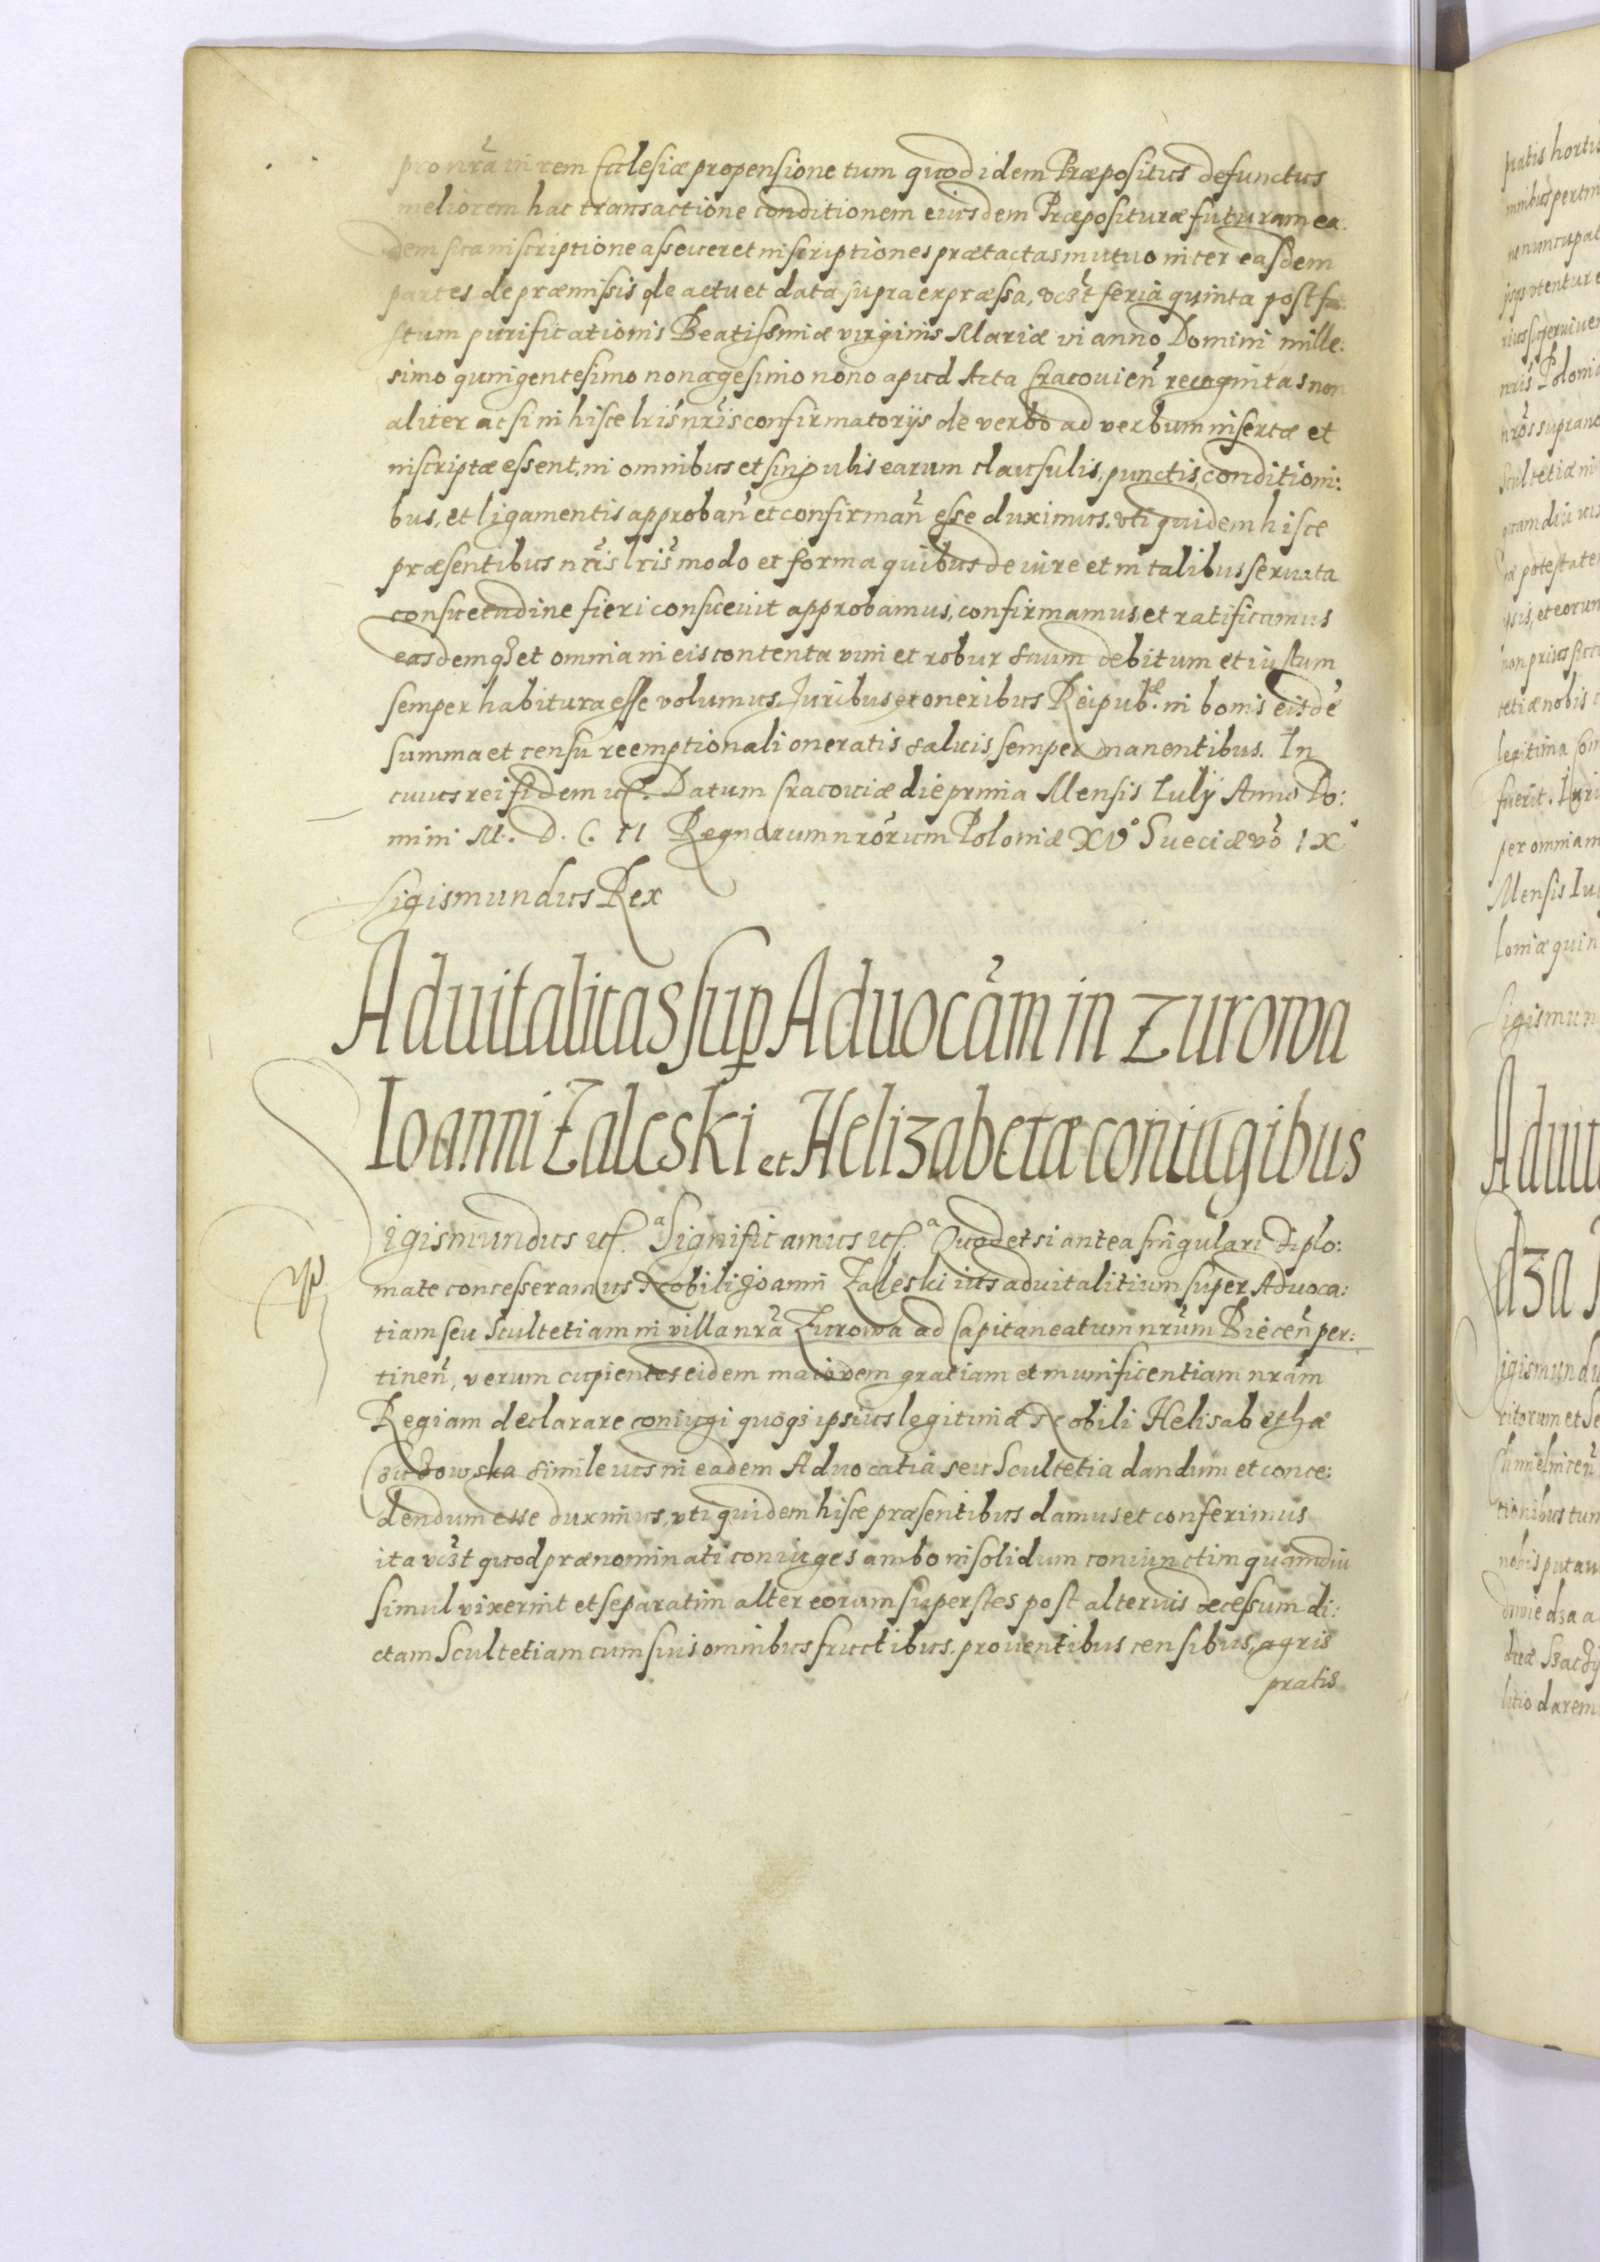 pro nrã in rem Ecclesiæ propensione tum quod idem Præpositus defunctus
meliorem hac transactione conditionem eiusdem Præposituræ futuram ea:
dem sua inscriptione asseueret inscriptiones prætactas mutuo inter easdem
partes de præmissis de actu et data supra expræssa, vcꝫt feria quinta post fe:
stum purificationis Beatissimæ virginis Mariæ in anno Domini mille:
simo quingentesimo nonagesimo nono apud Acta Cracouien̄ recognitas non
aliter ac si in hisce lris nris confirmatorijs de verbo ad verbum insertæ et
inscriptæ essent, in omnibus et singulis earum clausulis, punctis, conditioni:
bus, et ligamentis approban̄ et confirman̄ esse duximus. vti quidem hisce
præsentibus nris lris modo et forma quibus de iure et in talibus seruata
consuetudine fieri consueuit approbamus, confirmamus, et ratificamus
easdemqꝫ et omnia in eis contenta vim et robur suum debitum et iustum
semper habitura esse volumus. Juribus et oneribus Reipub.æ in bonis eisdẽ
summa et censu reemptionali oneratis saluis semper manentibus. In
cuius rei fidem etc. Datum Cracouiæ die prima Mensis Iulÿ Anno Do:
mini M. D. C. II Regnorum nrõrum Poloniæ XVº Sueciæ võ IXº
Sigismundus Rex
Aduitalitas sup Aduocãm in Zurowa
Ioanni Zaleski et Helizabetæ coniugibus
igismundus etc.ª Significamus etc.ª Quod etsi antea singulari diplo:
mate concesseramus Nobili Joanni Zaleski ius aduitalitium super Aduoca:
tiam seu Scultetiam in villa nrã Zurowa ad Capitaneatum nrũm Biecen̄ per:
tinen̄, verum cupientes eidem maiorem gratiam et munificentiam nrãm
Regiam declarare coniugi quoqꝫ ipsius legitimæ Nobili Helisabethæ
simile ius in eadem Aduocatia seu Scultetia dandum et conce:
dendum esse duximus, vti quidem hisce præsentibus damus et conferimus
ita vcꝫt quod prænominati coniuges ambo in solidum coniunctim quamdiu
simul vixerint et separatim alter eorum superstes post alterius decessum di:
ctam Scultetiam cum suis omnibus fructibus, prouentibus censibus, agris
pratis